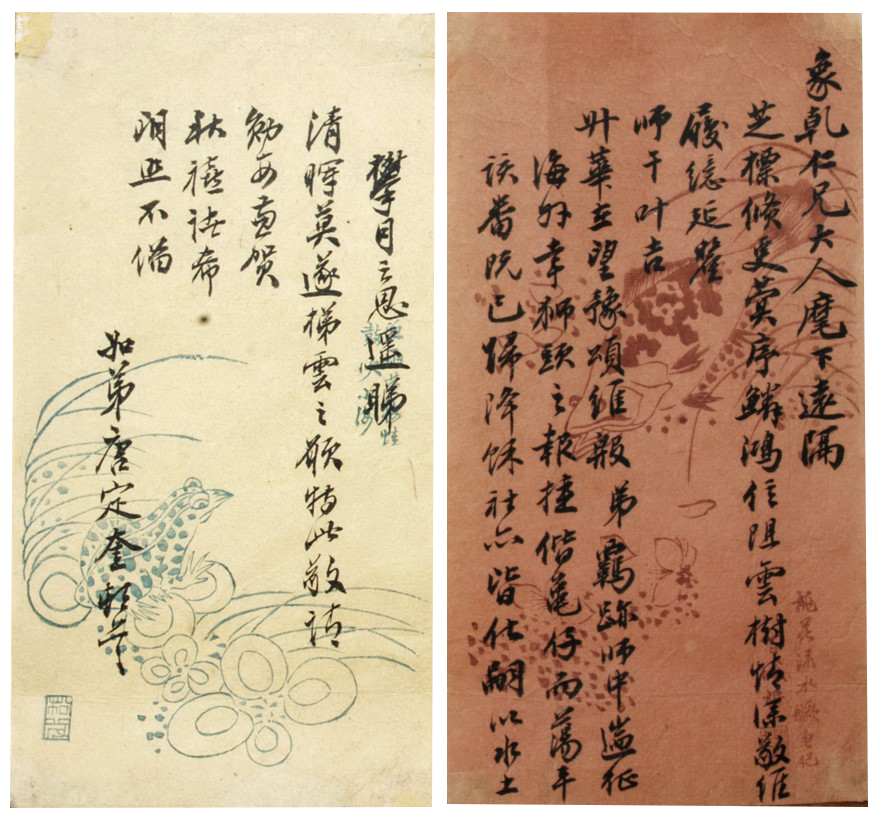 象乾仁兄大人麾下遠隔
芝標倏更蓂序鱗鴻信阻雲樹情深敬維
履繶延釐
師干叶吉
升華在望豫頌維殷 弟羈跡師中遄征
海外幸獅頭之報捷偕龜仔而蕩平
該番既已歸降餘社亦皆化嗣以水土
攀月之思遥睇
清暉莫遂梯雲之願特此敬請
勛安並賀
秋禧諸希
朗照不備
如弟唐定奎頓首